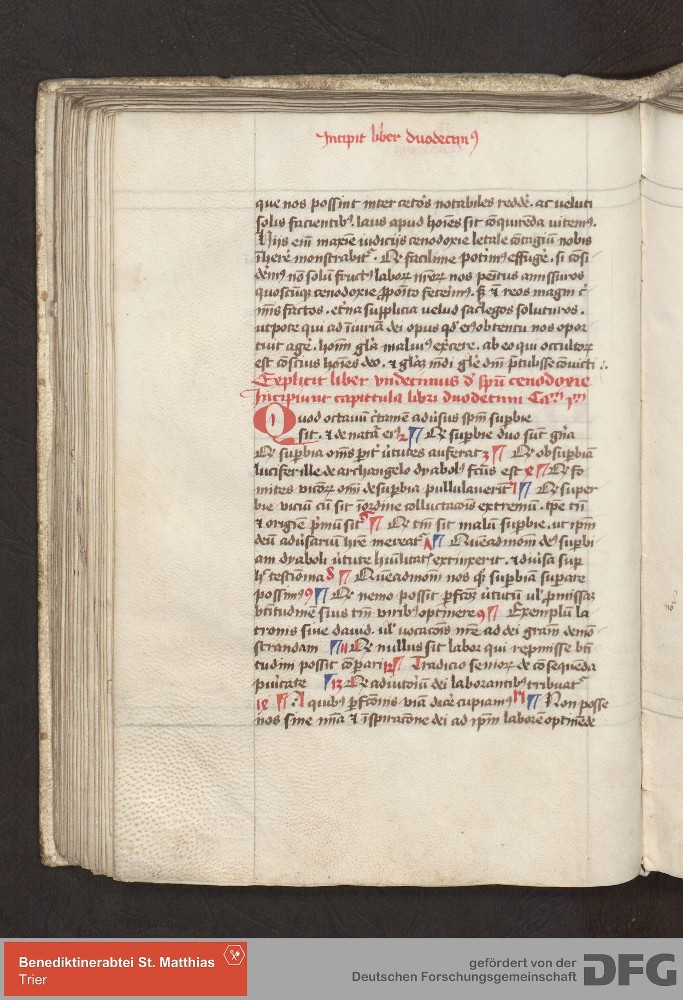 Incipit liber duodecim9
que nos possint inter cetos notabiles redde. ac veluti
solis facientib9. laus apud hoies sit coquireda vitem9.
Hiis eni maxie iudicijs cenodoxie letale cotagiu nobis
ihere monstrabit. Qr facilime poterim9 effuge. si cosi
derem9 no solu fructu laboru nrorum nos penitus amissuros
quoscuq cenodoxie pposito fecerim9. sz et reos magni
mis factos. eterna supplicia velud sacrlegos soluturos.
utpote qui ad iniuria dei opus qd eius obtentu nos opor
tuit age. hoim gla maluim9 exercere. ab eo qui occultorum
est coscius hoies deo. et gloriam mudi gle dni ptulisse couicti
Explicit liber vndecimus d spu cenodoxie
Incipiunt capittula libri duodecimi Cam jm
Quod octauu certame aduersus spm supbie
sit. et de nata ei9 2 Qr supbie duo sut gna
Qr supbia oms perit virtutes auferat 3 Qr ob supbia
luciferille de archangelo dyabol9 fcus est Qr fo
mites vicorum omi desupbia pullulauerit Qr super
bie viciu cu sit iordine colluctacois extremu. tpe tn
et origie pmu sit Qr tm sit malu supbie. ut ipm
deu aduersariu hre mereat Queadmom de9 supbi
am dyaboli virtute humilitatis extinxerit. et diuersa sup
h testimoia 8 Queadmom nos qz supbia supare
possim9 9 Qr nemo possit pfcoz virtutu vl pmissaz
btitudine sius tm virib9 optinere Exemplu la
tronis siue dauid. vl vocacois nre ad dei gram demo
strandam 11 Qr nullus sit labor qui repmisse bti
tudini possit copari 12 Tradicio seniorum de cosequeda
puritate 13 Qr adiutoriu dei laborantib9 tribuat
A quib9 pfcois via dice cupiam9 Non posse
nos sine mia et ispiracone dei ad ipm labore optinede
Benediktinerabtei St. Matthias
Trier
gefördert von der
Deutschen Forschungsgemeinschaft
DFG